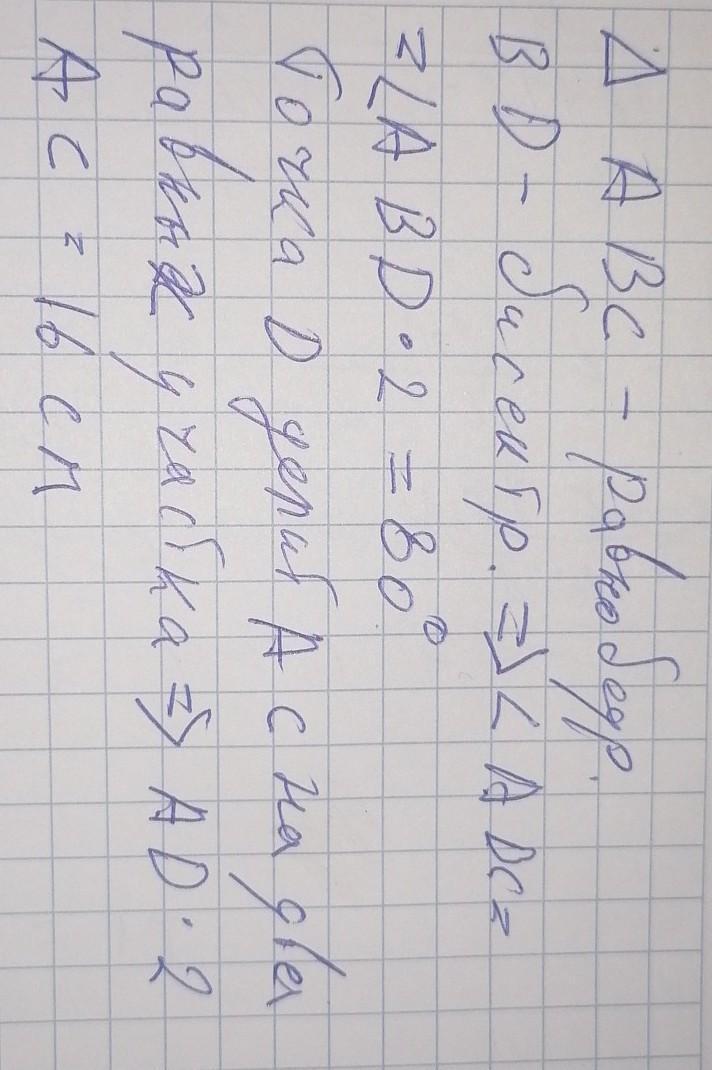 Δ ABC - равнобедр.
BD - бисектр. => ∠ABC =
= ∠ABD · 2 = 80°
Точка D делит AC на два
равных участка => AD · 2
AC = 16 см